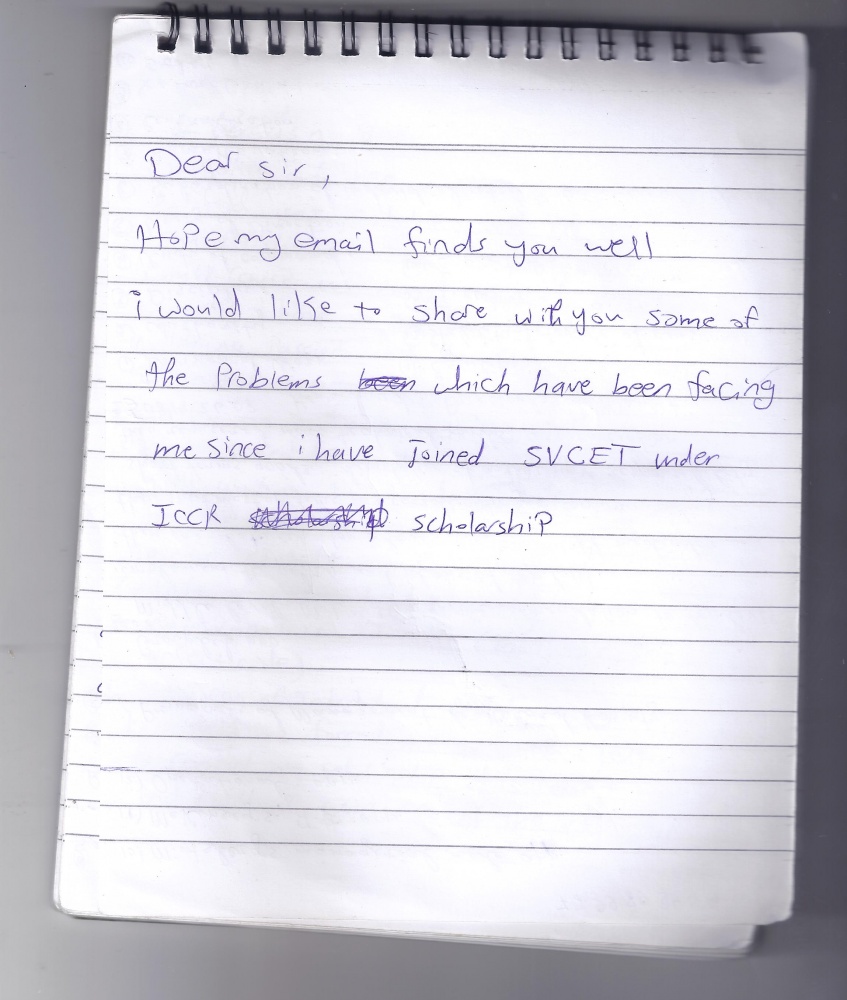 Dear sir,
Hope my email finds you well
i would like to share with you some of
the Problems been which have been facing
me since i have Joined SVCET under
ICCR scholarship scholarship